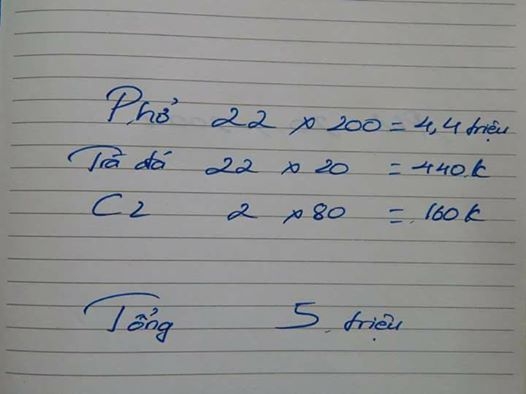 Phở 22 x 200 = 4,4 triệu
Trà đá 22 x 20 = 440.k
C2 2 x 80 = 160k
Tổng 5 triệu